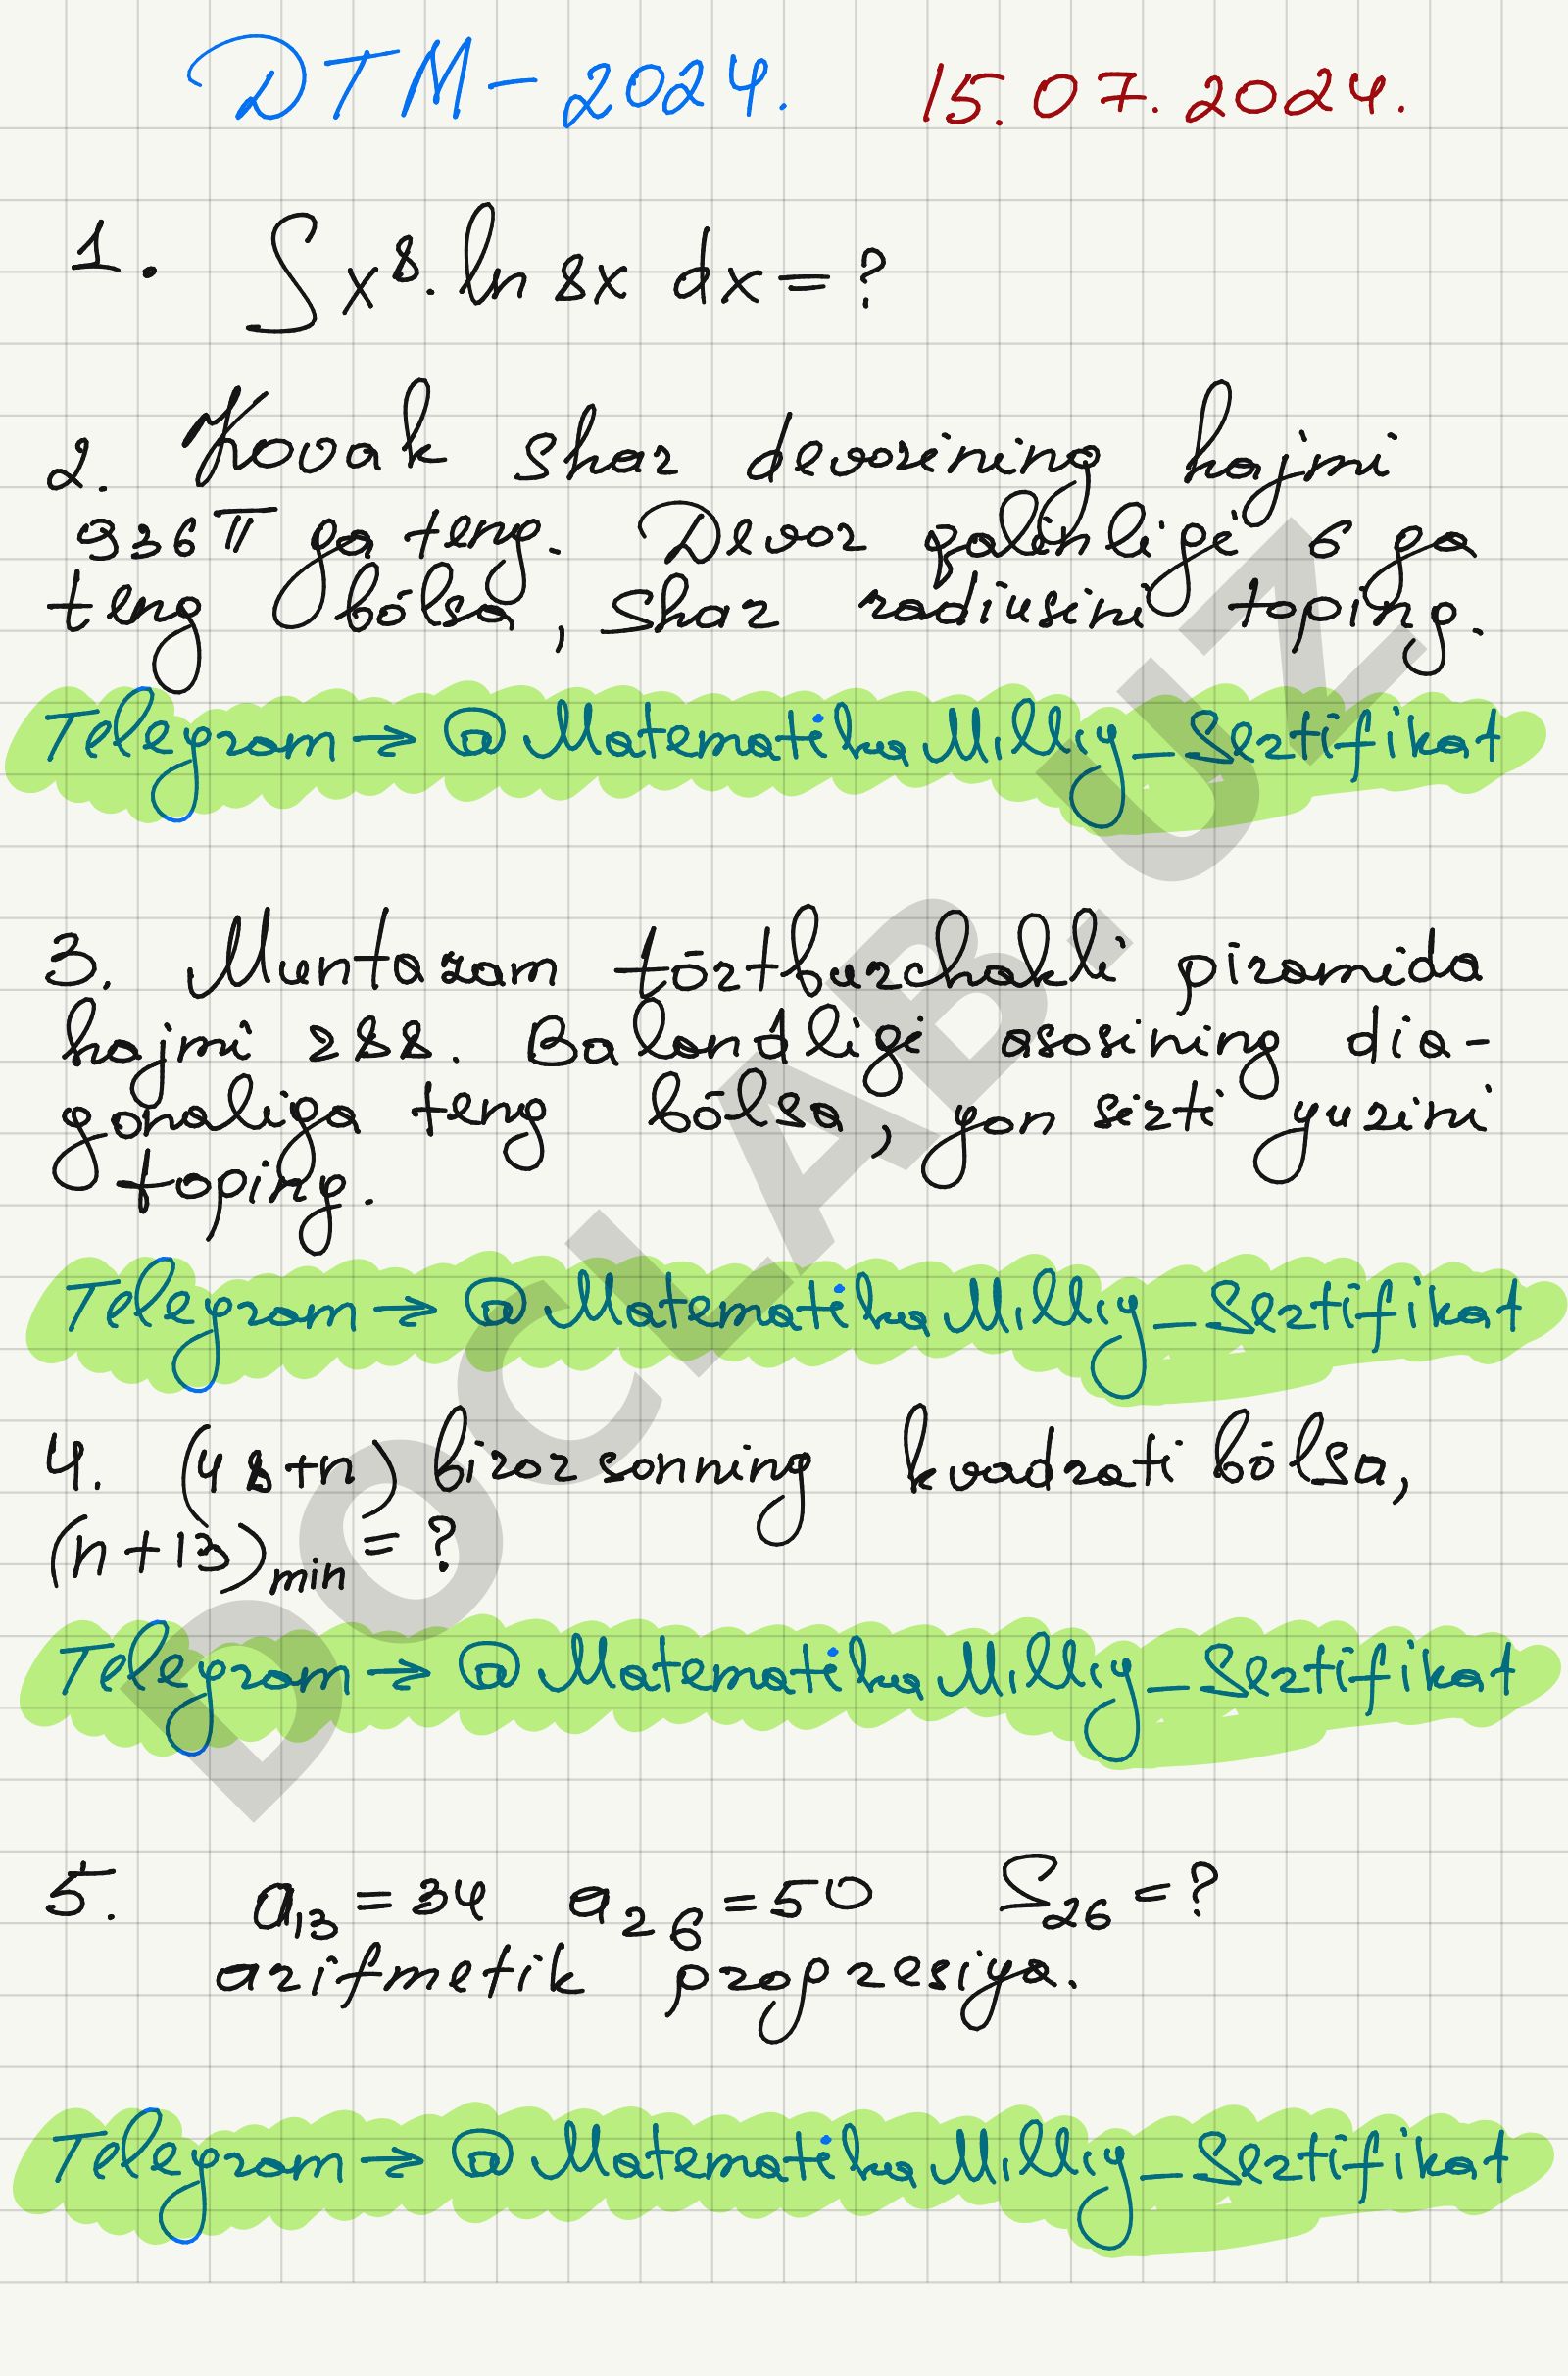 DTM-2024. 15.07.2024.
1. ∫x⁸·ln 8x dx = ?
2. Kovak shar devorining hajmi
936π ga teng. Devor qalinligi 6 ga
teng bõlsa, shar radiusini toping.
Telegram → @MatematikaMilliy_Sertifikat
3. Muntazam tõrtburchakli piramida
hajmi 288. Balandligi asosining dia-
gonaliga teng bõlsa, yon sirti yuzini
toping.
Telegram → @MatematikaMilliy_Sertifikat
4. (48+n) biror sonning kvadrati bõlsa,
(n+13)min = ?
Telegram → @MatematikaMilliy_Sertifikat
5. a₁₃ = 34 a₂₆ = 50 S₂₆ = ?
arifmetik progresiya.
Telegram → @MatematikaMilliy_Sertifikat
DOCLAB.UZ